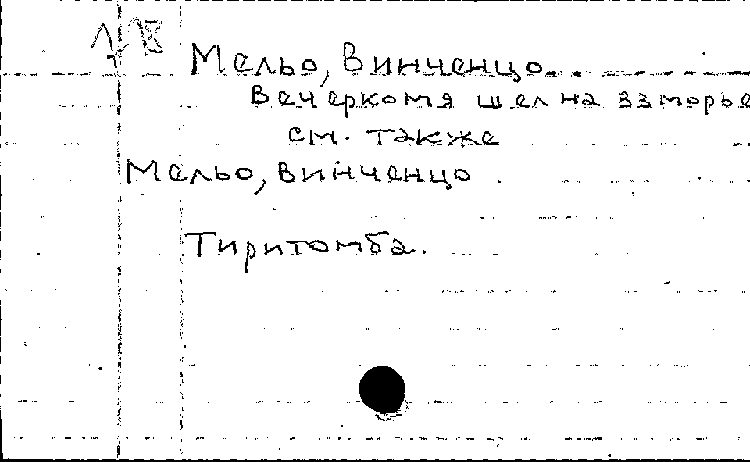 Мельо, Винченцо.
Вечерком я шел на взморье
см. также
Мельо, Винченцо
Тиритомба.